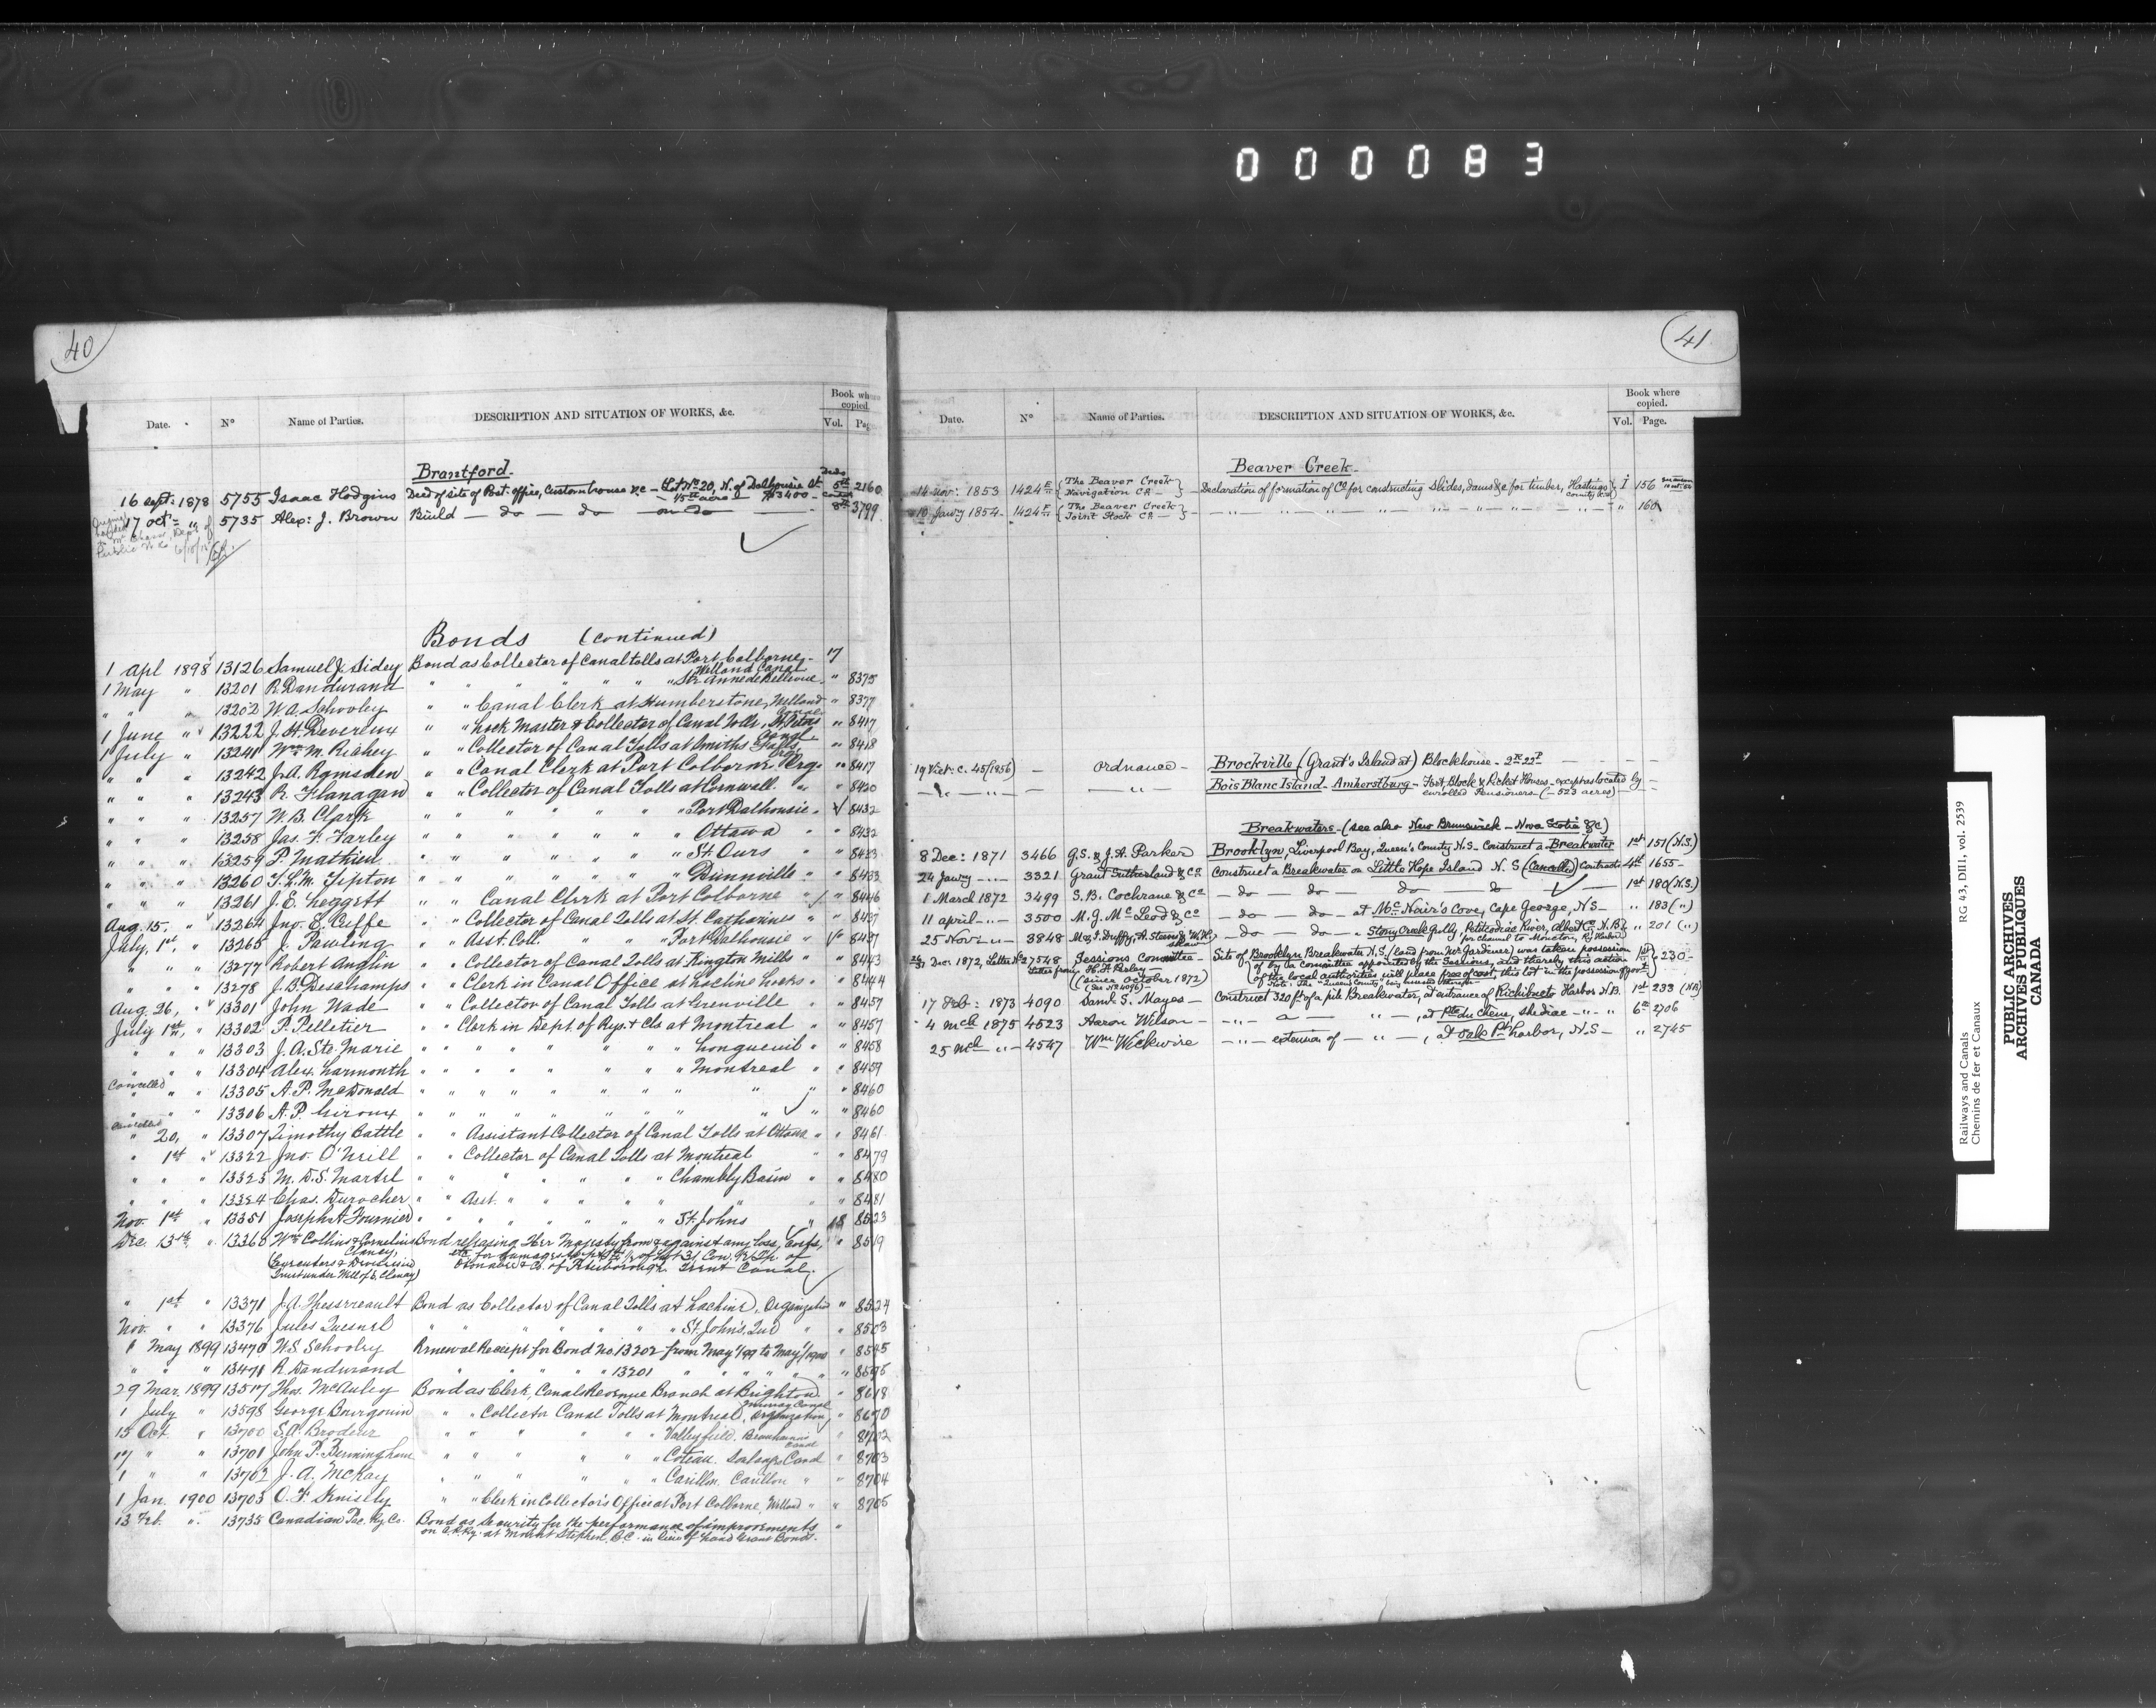 000083
40
Date. N° Name of Parties. DESCRIPTION AND SITUATION OF WORKS, &c. Book where copied. Vol. Pag
Brantford.
16 Sept: 1878 5755 Isaac Hodgins Deed of site of Post-office, Custom house &c — Lot No 20, N. of Dalhousie St 5th 2160
1/5th acre $3400
17 Oct = " 5735 Alex: J. Brown Build — do — do — on do — 8th 3799
Bonds (continued)
1 Apl 1898 13126 Samuel J. Sidey Bond as Collector of Canal tolls at Port Colborne, 17
Welland Canal
1 May " 13201 R. Dandurand " " " " " " Ste Anne de Bellevue " 8375
" " " 13202 W.A. Schooley " " Canal Clerk at Humberstone, Welland Canal " 8377
1 June " 13222 J.H. Devereux " " Lock Master & Collector of Canal Tolls, St Peters Canal " 8417
1 July " 13241 Wm M. Richey " " Collector of Canal Tolls at Smiths Falls " 8418
" " " 13242 J.A. Ramsden " " Canal Clerk at Port Colborne " 8417
" " " 13243 R. Flanagan " " Collector of Canal Tolls at Cornwall " " 8420
" " " 13257 W.B. Clark " " " " " " Port Dalhousie " 8432
" " " 13258 Jas. F. Farley " " " " " " Ottawa " " 8432
" " " 13259 P. Mathieu " " " " " " St. Ours " " 8433
" " " 13260 T.L.M. Tipton " " " " " " Dunnville " " 8433
" " " 13261 J.E. Leggett " " Canal Clerk at Port Colborne " " 8446
Aug. 15, " 13264 Jno. E. Cuffe " " Collector of Canal Tolls at St. Catharines " " 8437
July, 1st, " 13265 J. Pawling " " Asst. Coll. " " " Port Dalhousie " 8437
" " " 13277 Robert Anglin " " Collector of Canal Tolls at Kington Mills " " 8443
" " " 13278 J.B. Deschamps " " Clerk in Canal Office at Lachine Locks " " 8444
Aug. 26, " 13301 John Wade " " Collector of Canal Tolls at Grenville " " 8457
July 1st, " 13302 P. Pelletier " " Clerk in Dept. of Rys. & Cls at Montreal " " 8457
" " " 13303 J.A. Ste. Marie " " " " " " Longueuil " " 8458
" " " 13304 Alex. Larmonth " " " " " " Montreal " " 8459
Cancelled " " 13305 A.P. McDonald " " " " " " " " 8460
" " " 13306 A.P. Giroux " " " " " " " " 8460
Cancelled
" 20, " 13307 Timothy Battle " " Assistant Collector of Canal Tolls at Ottawa " " 8461
" 1st " 13322 Jno. O'Neill " " Collector of Canal Tolls at Montreal " " 8479
" " " 13323 M.D.S. Martel " " " " " " Chambly Basin " " 8480
" " " 13324 Chas. Durocher " " Asst. " " " " " 8481
Nov. 1st " 13351 Joseph A. Fournier " " " " " " St. Johns " 18 8523
Dec. 13th, " 13360 Wm Collins & Cornelius Clancy, Bond releasing Her Majesty from & against any loss, costs, " 8519
(Executors & Trust under Will of Clancy) etc. for damages of Lot 31 Con. Tp. of Otonabee Co. of Peterborough Trent Canal.
" 1st " 13371 J.A. Thessereault Bond as Collector of Canal Tolls at Lachine, Organization " 8524
Nov. " " 13376 Jules Quesnel " " " " " " St. John's, Que " " 8503
1 May 1899 13470 W.S. Schooley Renewal Receipt for Bond No. 13202 from May 1/99 to May 1/1900 " 8545
" " " 13471 R. Dandurand " " " " 13201 " " " " "
29 Mar. 1899 13517 Thos. McAuley Bond as Clerk, Canal Revenue Branch at Brighton " 8618
Murray Canal
1 July " 13598 George Bourgouin " " Collector Canal Tolls at Montreal, Organization " 8670
15 Oct " 13700 S.A. Brodeur " " " " " Valleyfield, Beauharnois Canal " 8702
17 " " 13701 John P. Bermingham " " " " Coteau. Soulanges Canal " 8703
1 " " 13702 J.A. McKay " " " " Carillon. Carillon " " 8704
1 Jan. 1900 13703 O.F. Knisely " " Clerk in Collector's Office at Port Colborne, Welland " " 8705
13 Feb. " 13735 Canadian Pac. Ry Co. Bond as Security for the performance of improvements "
on C.P.Ry. at Mount Stephen, B.C. in lieu of Land Grant Bonds.
41
Date. N° Name of Parties. DESCRIPTION AND SITUATION OF WORKS, &c. Book where copied. Vol. Page.
Beaver Creek.
14 Nov: 1853 1424 E {The Beaver Creek Navigation Co.} — Declaration of formation of Co. for constructing Slides, dams &c for timber, Hastings County 1 156
10 Jawry 1854 1424 F {The Beaver Creek Joint Stock Co.} — " — " — " — " 160
19 Vict. c. 45 (1856) — Ordnance — Brockville (Grant's Island at) Blockhouse
— " — " — — " — Bois Blanc Island - Amherstburg - Fort, Block & Picket Houses - except as located by
enrolled Pensioners - (- 523 acres) -
Breakwaters - (see also New Brunswick - Nova Scotia &c)
8 Dec: 1871 3466 G.S. & J.A. Parker Brooklyn, Liverpool Bay, Queen's County N.S. - Construct a Breakwater 1st 151 (N.S.)
24 Jawry — 3321 Grant Sutherland & Co Construct a Breakwater on Little Hope Island N.S (Cancelled) Contracts 4th 1655 -
1 March 1872 3499 S.B. Cochrane & Co — do — do — do — do — 1st 180 (N.S.)
11 april - " - 3500 M.G. McLeod & Co — do — do — at McNair's Cove, Cape George, N.S — " 183 (")
25 Nov: - " - 3848 M. & J. Duffy, A. & W. H. — do — do — " Stony Creek Gully, Petitcodiac River, Albert Co. N.B. " 201 (")
for channel to Moncton, Ry Harbor
Dec: 1872, Letter No 27548 Sessions Committee — Site of Brooklyn Breakwater N.S. (land from Mr Gardiner) was taken possession 1st 230 -
Letter from H.F. Perley — of by a committee appointed by the Sessions, and thereby this action
(since October 1872) of the local authorities will place free of cost, this lot in the possession of Govt
(See No 4096)
17 Feb: 1873 4090 Saml. S. Mayes — Construct 320 ft of a pile Breakwater, at entrance of Richibucto Harbor N.B. 1st 233 (N.B)
4 Mch 1875 4523 Aaron Wilson — - " - a — " — , at Pte du Chene, Shediac - " - " 6th 2706
25 Mch - " - 4547 Wm Wickwire — " — extension of — " — , at Oak Pt harbor, N.S — " 2745
Railways and Canals RG 43, DIII, vol. 2539
Chemins de fer et Canaux
PUBLIC ARCHIVES
ARCHIVES PUBLIQUES
CANADA